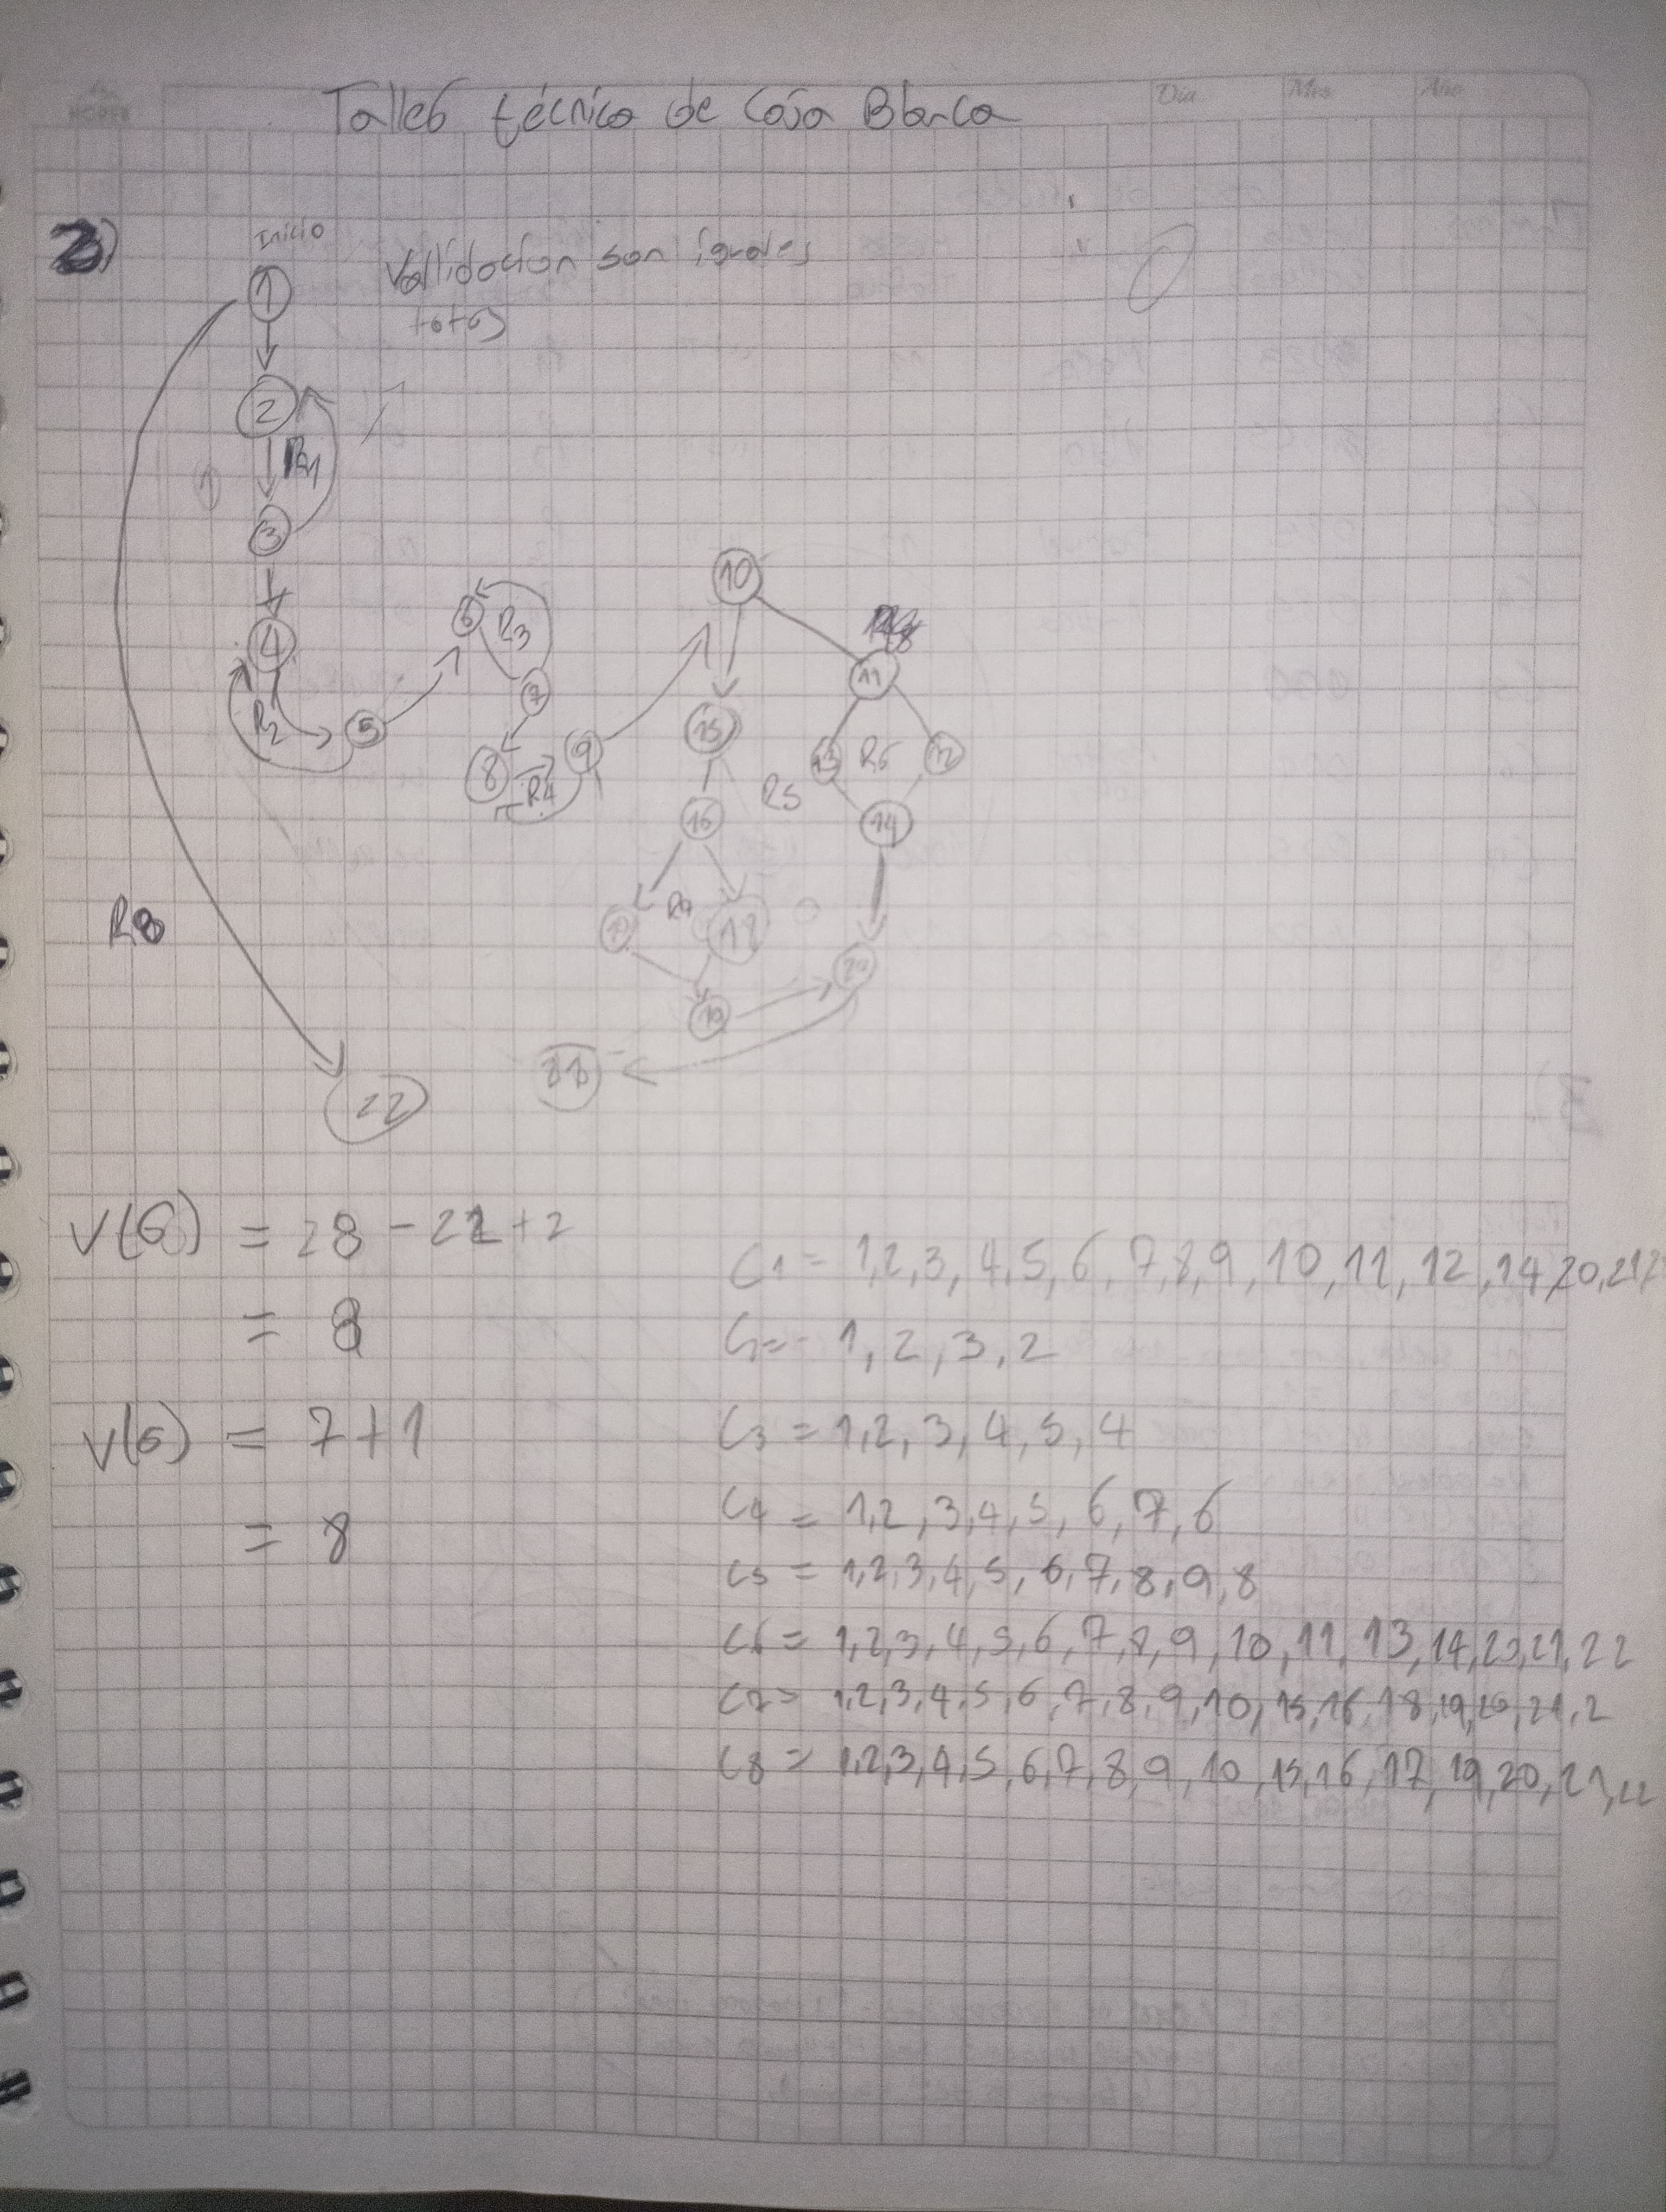 Dia Mes Año
Taller técnico de Caja Blanca
Inicio
Vallidacion son iguales
1
2
R1
3
4
R2
5
6
R3
7
8
R4
9
10
11
15
13
R6
12
R5
16
14
18
19
20
R8
22
V(G) = 28 - 22 + 2
= 8
V(G) = 7 + 1
= 8
C1 = 1,2,3,4,5,6,7,8,9,10,11,12,14,20,21
1,2,3,2
C3 = 1,2,3,4,5,4
C4 = 1,2,3,4,5,6,7,6
C5 = 1,2,3,4,5,6,7,8,9,8
C6 = 1,2,3,4,5,6,7,8,9,10,11,13,14,20,21,22
C7 = 1,2,3,4,5,6,7,8,9,10,15,16,18,19,20,21,2
C8 = 1,2,3,4,5,6,7,8,9,10,15,16,17,19,20,21,22